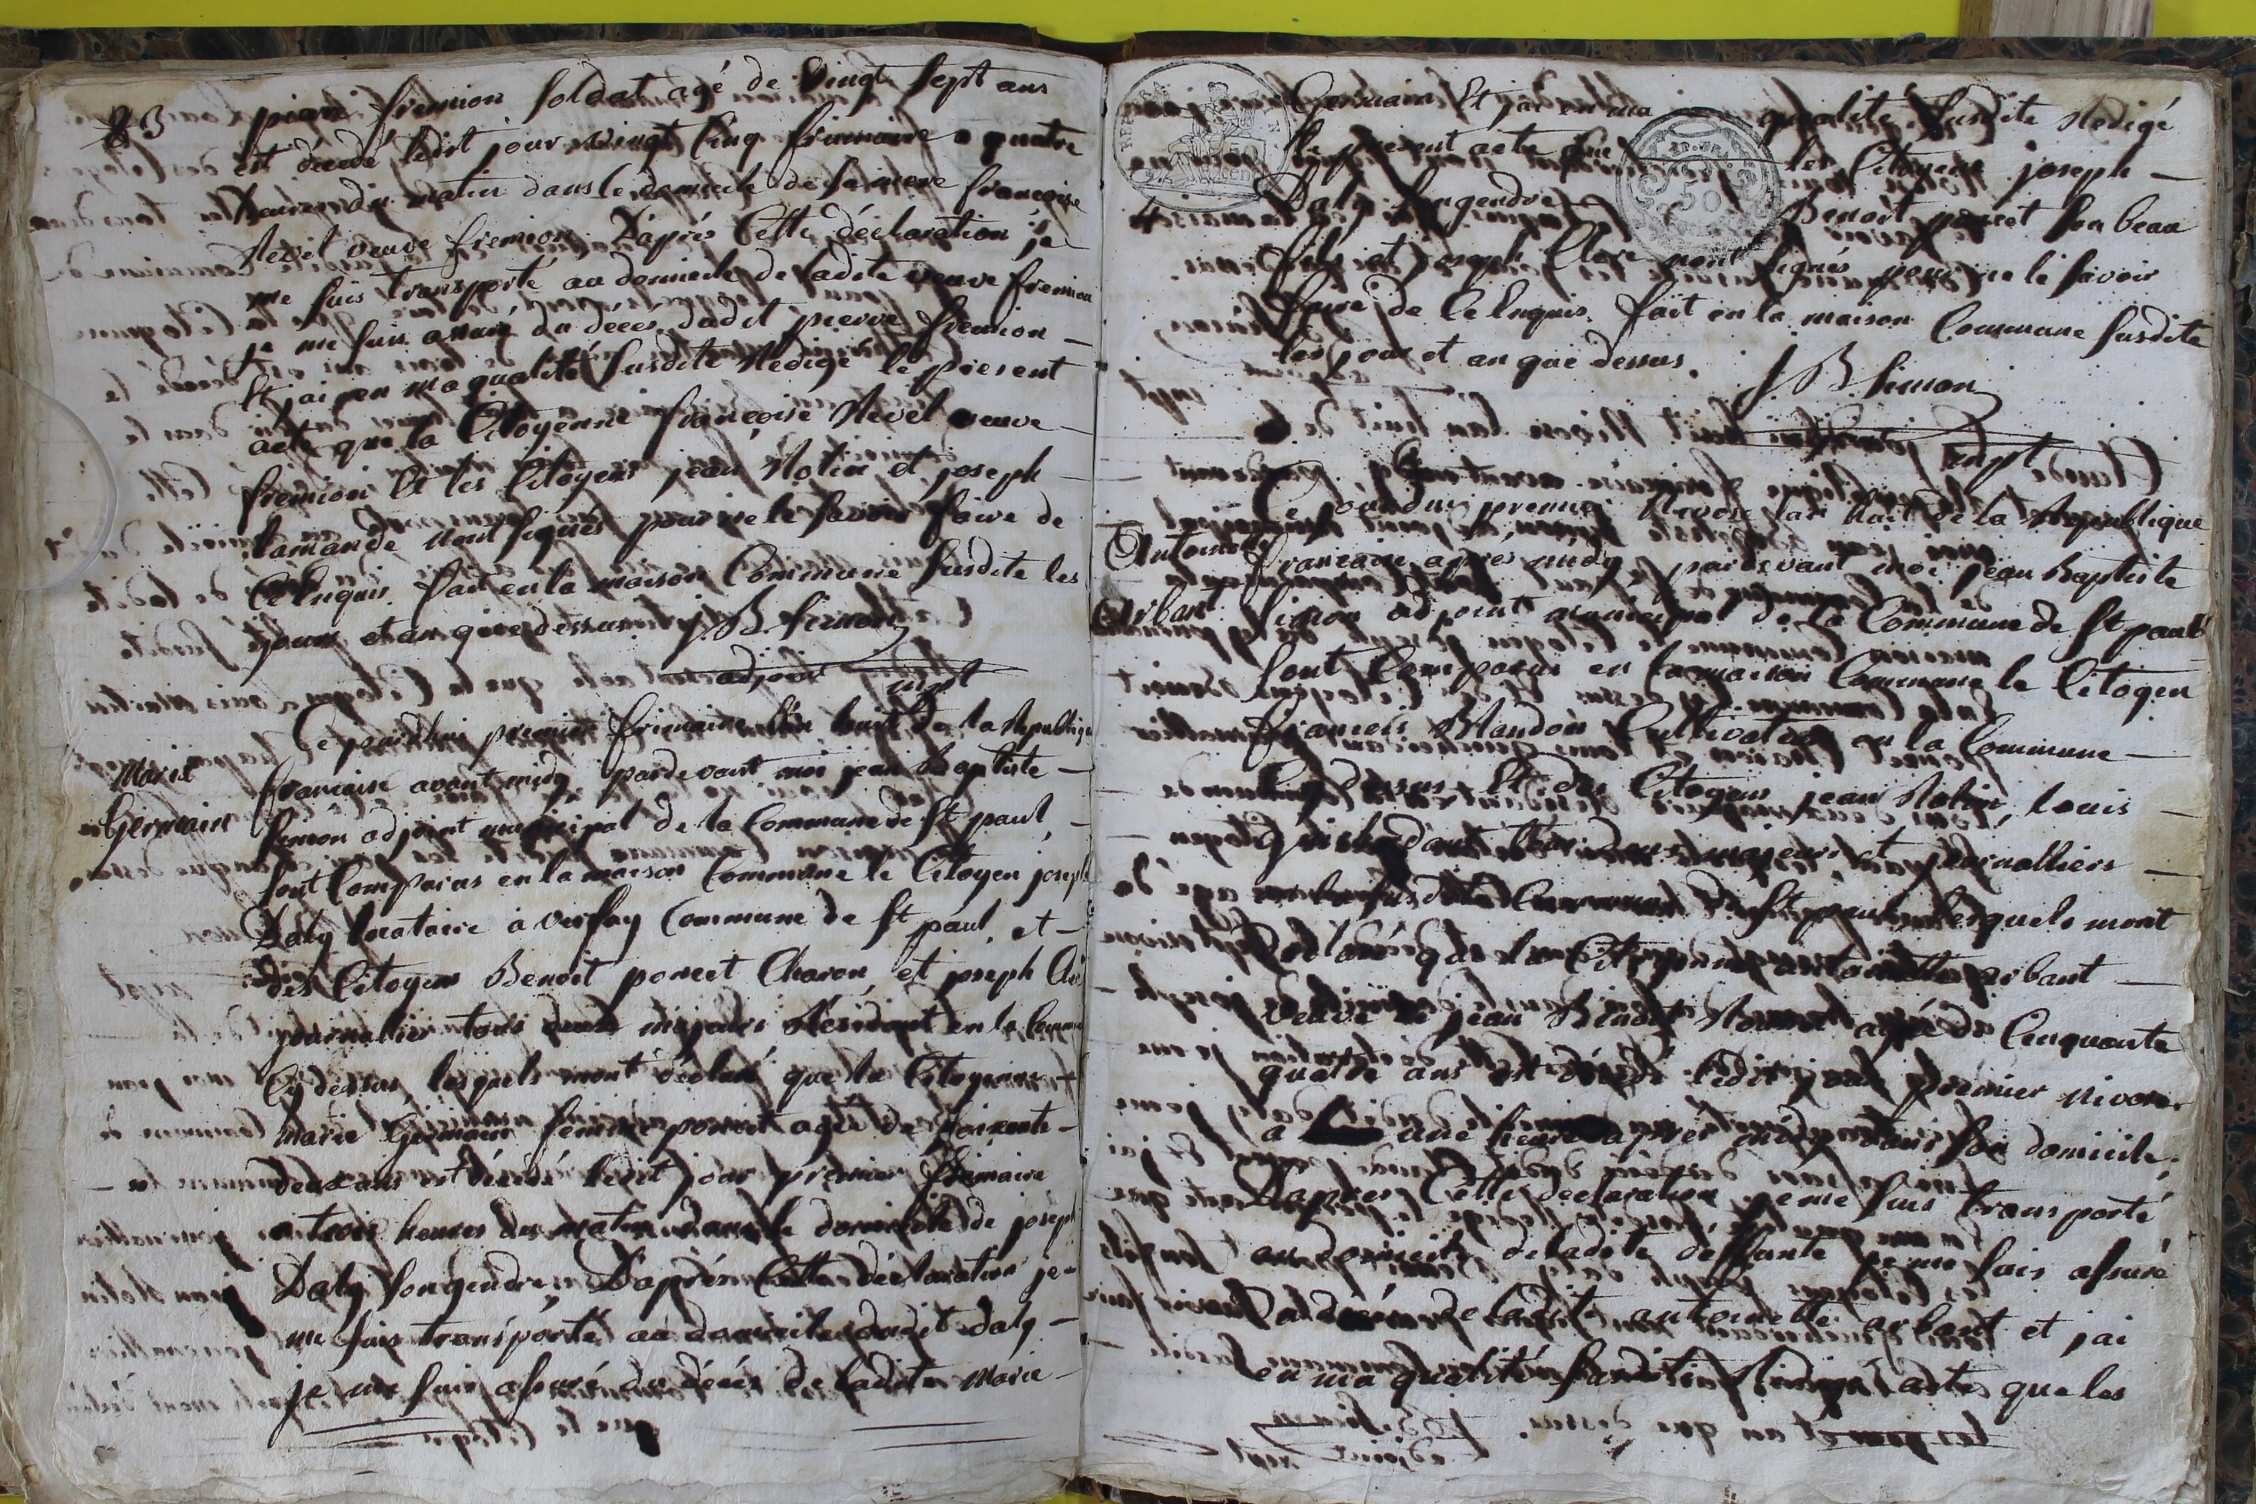 23
pierre fremion soldat agé de vingt sept ans
est décédé ledit jour vingt cinq frimaire a quatre
heures du matin dans le domicile de sa mere françoise
Revel veuve fremion. D'après Cette déclaration je
me suis transporté au domicile de ladite veuve fremion
je me suis assuré du décès dudit pierre fremion
Et j'ai en ma qualité susdite Redigé le present
acte que la Citoyenne françoise Revel veuve
fremion Et les Citoyens jean Rotin et joseph
lamande n'ont signés pour ne le savoir faire de
Ce Enquis. fait en la maison Commune susdite les
jour et an que dessus. J. B. Simon
adjoint mpt
Marie
Germain
Ce jourdhui premier frimaire l'an huit de la Republique
francaise avant midy pardevant moi jean Baptiste
Simon adjoint municipal de la Commune de St paul,
sont Comparus en la maison Commune le Citoyen joseph
Daly locataire à verfay Commune de St paul, et
des Citoyens Benoit poncet Charon, et joseph
journalier tous deux majeurs Résidant en la Commune
Cy dessus, lesquels m'ont déclaré que la Citoyenne
marie Germain femme poncet agée de soixante
deux ans est décédée ledit jour premier frimaire
a trois heures du matin dans le domicile de joseph
Daly son gendre. D'après Cette déclaration je
me suis transporté au domicile dudit Daly
je me suis assuré du décès de ladite marie
Germain Et j'ai en ma qualité susdite Redigé
le present acte que les Citoyens joseph
Daly son gendre Benoit poncet son beau
fils et joseph n'ont signés pour ne le savoir
faire de Ce Enquis. fait en la maison Commune susdite
les jour et an que dessus.
J. B. Simon
mpt
Antoinette
arbant
Ce jourdhui premier Nivose l'an huit de la Republique
francaise après midy pardevant moi jean Baptiste
Simon adjoint municipal de la Commune de St paul
sont Comparus en la maison Commune le Citoyen
francois Blandon Cultivateur en la Commune
Cy dessus Et des Citoyens jean Rotin, louis
tous deux majeurs et journalliers
en la susdite Commune de St paul lesquels m'ont
déclaré que la Citoyenne antoinette arbant
veuve de jean Benoit agée de Cinquante
quatre ans est décédée ledit jour premier nivose
a une heure après midy dans son domicile.
D'après Cette declaration je me suis transporté
au domicile de ladite deffunte je me suis assuré
du décés de ladite antoinette arbant et j'ai
en ma qualité susdite Redigé l'acte que les